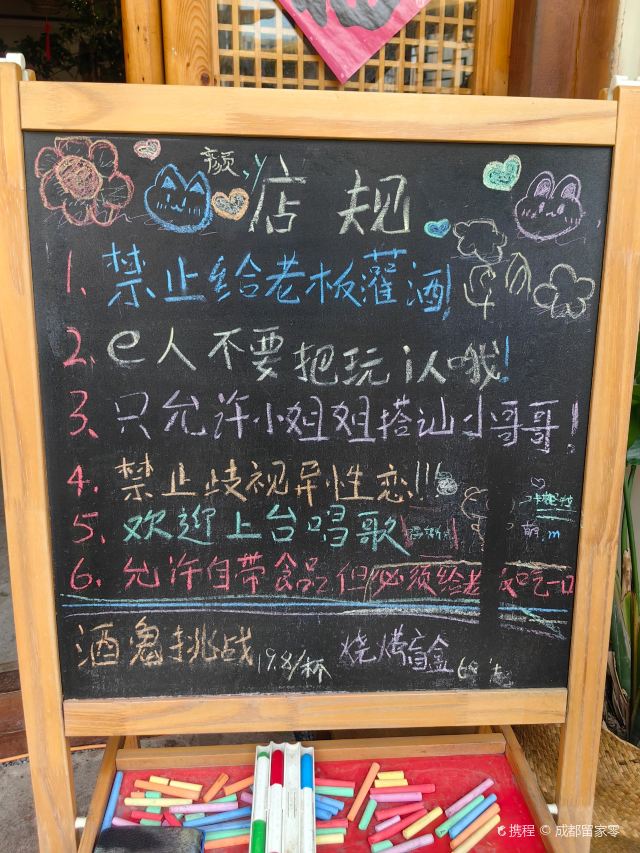 店规
1、禁止给老板灌酒!
2、e人不要把玩i人哦!
3、只允许小姐姐搭讪小哥哥!
4、禁止歧视异性恋!!!
5、欢迎上台唱歌
6、允许自带食品但必须给老板吃一口
酒鬼挑战 19.8/杯 烧烤盲盒
携程 © 成都留家零